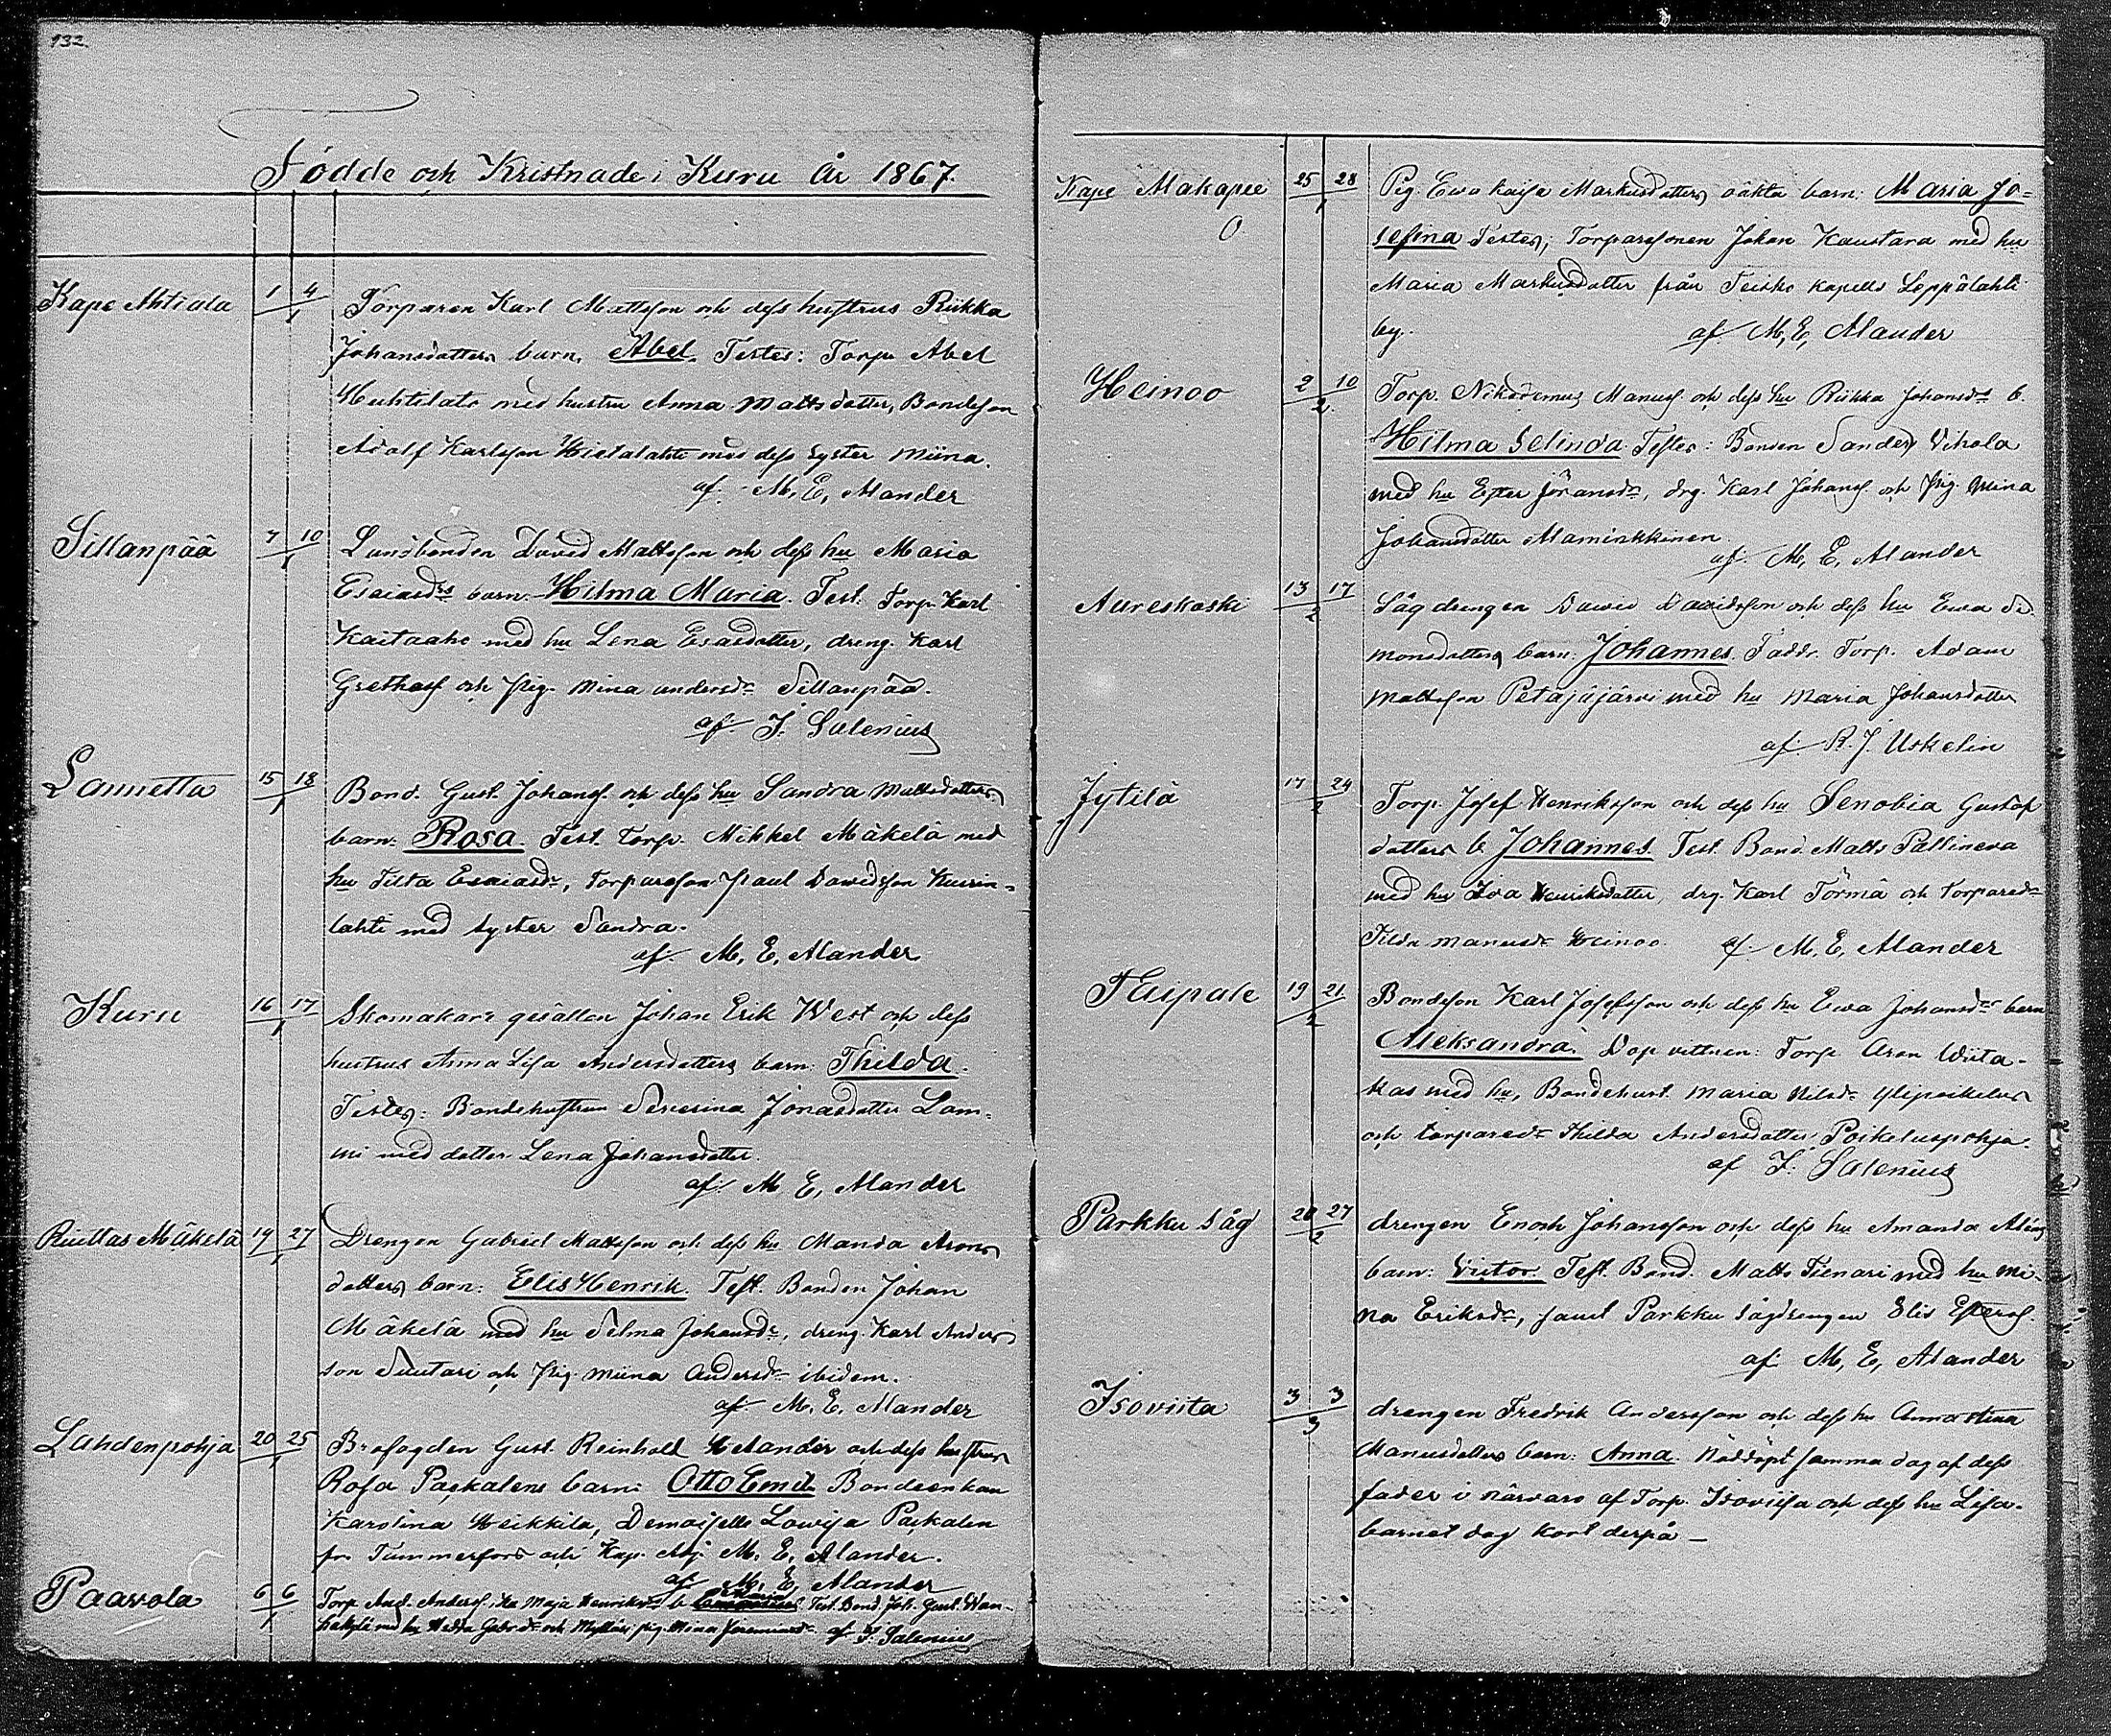 132.
Födde och Kristnade i Kuru År 1867.
Kape Ahtiala 1 4/1 Torparen Karl Mattsson och dess hustrus Riikka
Johansdotters barn, Abel. Testes: Torp Abel
Huhtilato med hustru Anna Matts dotter, Bondeson
Adolf Karlsson Hietalahti med dess syster Miina.
af. M. E. Alander
Sillanpää 7 10/1 Landbonden David Mattsson och dess hu Maria
Esaiasdrs barn. Hilma Maria. Test. Torp. Karl
Kaitaaho med hu Lena Esasdotter, dreng. Karl
och pig. Mina Andersdr Sillanpää.
af. J. Salenius
Lannetta 15 18/1 Bond. Gust. Johans. och dess hu Sandra Mattsdotters
barn: Rosa. Test. Torp. Mikkel Mäkelä med
hu Tilta Esaiasdr, Torpareson Paul Davidsson Kuivin-
lahti med syster Sandra.
af. M. E. Alander
Kuru 16 17/1 Skomakare gesällen Johan Erik West och dess
hustrus Anna Lisa Andersdotters barn: Thilda.
Testes: Bondehustrun Severina Jonasdotter Lam-
mi med dotter Lena Johansdotter.
af. M. E. Alander
Riuttas Mäkelä 19 27/1 Drengen Gabriel Mattsson och dess hu Manda Arons
dotters barn: Elis Henrik. Test. Bonden Johan
Mäkelä med hu Selma Johansdr, dreng. Karl Anders
son Suutari och pig. Miina Andersdr ibidem.
af M. E. Alander
Lahdenpohja 20 25/1 Brofogden Gust. Reinhold Helander och dess hustrus
Rosa Paskalens barn: Otto Emil Bondeenkan
Karolina Heikkilä, Demoiselle Lovisa Paskalen
fr. Tammerfors och Kap. Adj. M. E. Alander.
af M. E. Alander
Paavola 6 6/1 Torp. And. Anders. hu Maja Henriksdr b. Test. Bond. Joh. Gust. Wan-
hakylä med hu Hedda Gabrdr och Mylläri pig. Mina af J. Salenius
Kape Makapee 25 28/1 Pig. Ewa Kaisa Markusdotters oäkta barn: Maria Jo-
0 sefina Testes, Torparesonen Johan Kaustara med hu
Maria Markusdotter från Teisko kapells Leppälahti
by. af. M. E. Alander
Heinoo 2 10/2 Torp. Nikodemus Manus. och dess hu Riikka Johansdr b.
Hilma Selinda Testes: Bonden Sanders Vihola
med hu Ester Jöransdr, drg. Karl Johans. och pig. Mina
Johansdotter Maminkkinen.
af. M. E. Alander
Aureskoski 13 17/2 Sågdrengen David Davidsson och dess hu Ewa Si
monsdotters barn. Johannes. Faddr. Torp. Adam
Mattsson Petäjäjärvi med hu Maria Johansdotter
af R. J. Uskelin
Jytilä 17 24/2 Torp. Josef Henriksson och dess hu Senobia Gustaf
dotters b. Johannes. Test. Bond. Matts Pallineva
med hu Iva Henriksdotter, drg. Karl Törmä och torparedr
Tilda Manusdr Heinoo. af. M. E. Alander
Taipale 19 21/2 Bondeson Karl Josefsson och dess hu Ewa Johansdr barn
Aleksandra. Dop vittnen: Torp Aron Wiita-
kas med hu, Bondehust. Maria Nilsdr Ylipoikelus
och torparedr Thilda Andersdotter Poikeluspohja.
af J. Salenius
Parkku såg 20 27/2 drengen Enock Johansson och dess hu Amanda
barn: Victor. Test. Bond. Matts Tienari med hu Mi-
na Eriksdr, samt Parkku sågdrengen Elis Esters.
af M. E. Alander
Isoviita 3 3/3 drengen Fredrik Andersson och dess hu Anna Stina
Manusdotters barn: Anna. Nöddöpt samma dag af dess
fader i närvaro af Torp. Isoviita och dess hu Lisa.
barnet dog kort derpå –